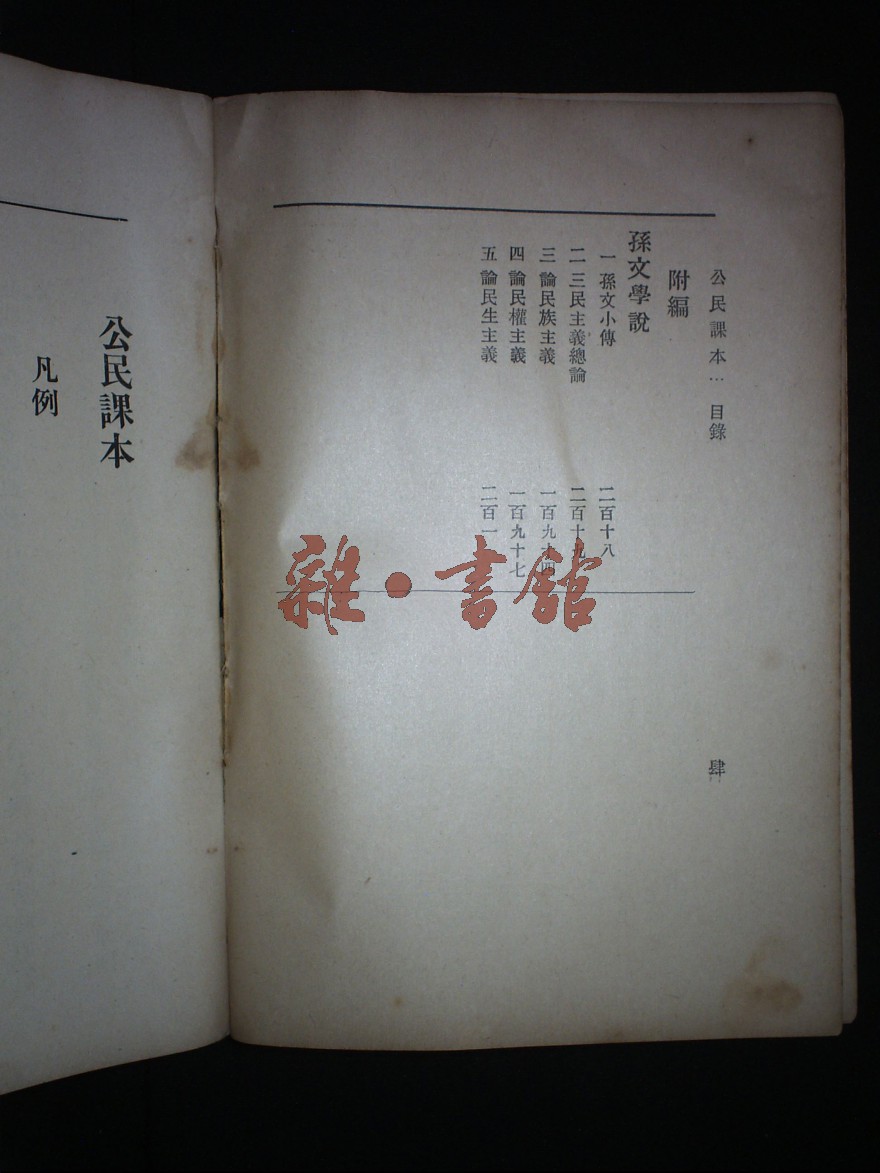 公民課本… 目錄
肆
附編
孫文學說
一 孫文小傳 二百十八
二 三民主義總論 二百十九
三 論民族主義 一百九十四
四 論民權主義 一百九十七
五 論民生主義 二百一
公民課本
凡例
雜·書館